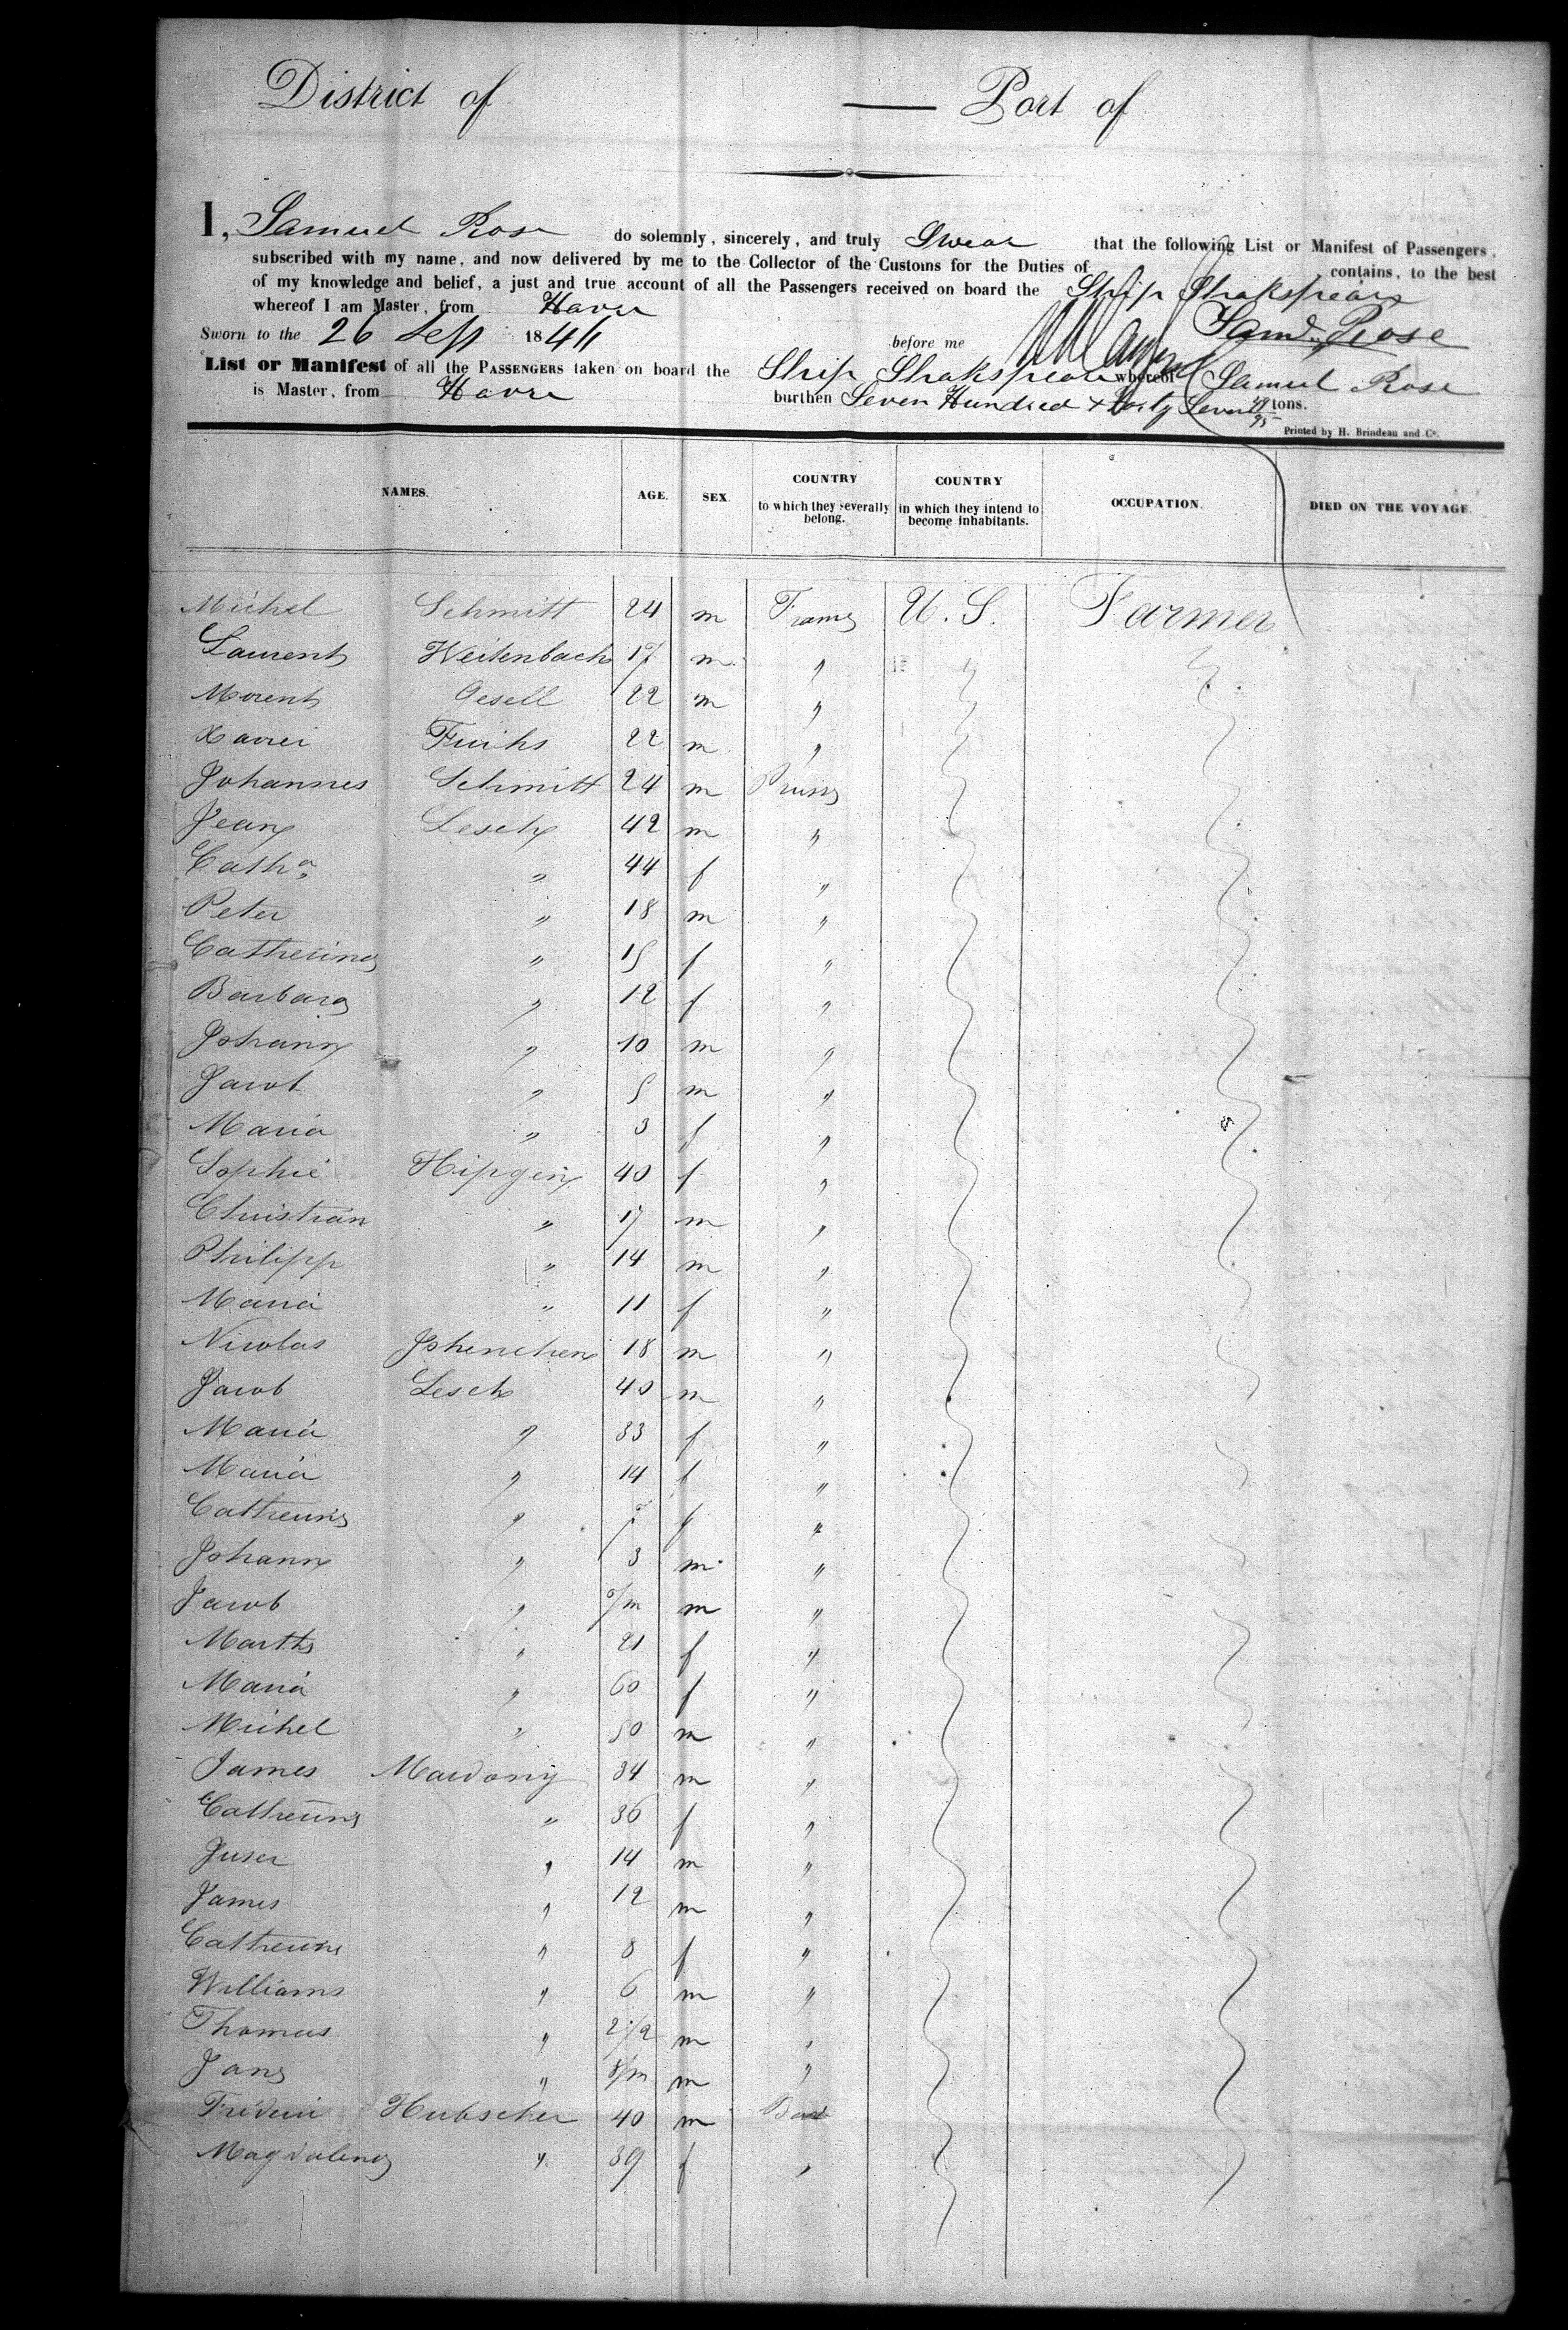 District of — Port of
I, Samuel Rose do solemnly, sincerely, and truly Swear that the following List or Manifest of Passengers,
subscribed with my name, and now delivered by me to the Collector of the Customs for the Duties of contains, to the best
of my knowledge and belief, a just and true account of all the Passengers received on board the Ship Shakspeare
whereof I am Master, from Havre
Saml. Rose
Sworn to the 26 Sep 184 before me
List or Manifest of all the PASSENGERS taken on board the Ship Shakspeare whereof Samuel Rose
is Master, from Havre burthen Seven Hundred & Forty Seven tons.
Printed by H. Brindeau and Co.
NAMES. AGE. SEX. COUNTRY to which they severally belong. COUNTRY in which they intend to become inhabitants. OCCUPATION. DIED ON THE VOYAGE.
Michel Schmitt 24 m France U. S. Farmer
Laurent Weitenbach 17 m " "
Morent Gesell 22 m "
Xavier Fuchs 22 m "
Johannes Schmitt 24 m Pruss
Jean Lesch 42 m "
Catha " 44 f "
Peter " 18 m "
Catherina " 15 f "
Barbara " 12 f "
Johann " 10 m "
Jacob " 5 m "
Maria " 3 f "
Sophie Hipgen 40 f "
Christian " 17 m "
Philipp " 14 m "
Maria " 11 f "
Nicolas Johenchen 18 m "
Jacob Lesch 40 m "
Maria " 33 f "
Maria " 14 f "
Catherina " f "
Johann " 3 m "
Jacob " m "
Martha " 21 f "
Maria " 60 f "
Michel " 50 m "
James 34 m "
Catherina " 36 f "
" 14 m "
James " 12 m "
Catherina " 8 f "
Williams " 6 m "
Thomas " 2 1/2 m "
Jans " 8/m m "
Hubscher 40 m Bad
Magdalena " 39 f "